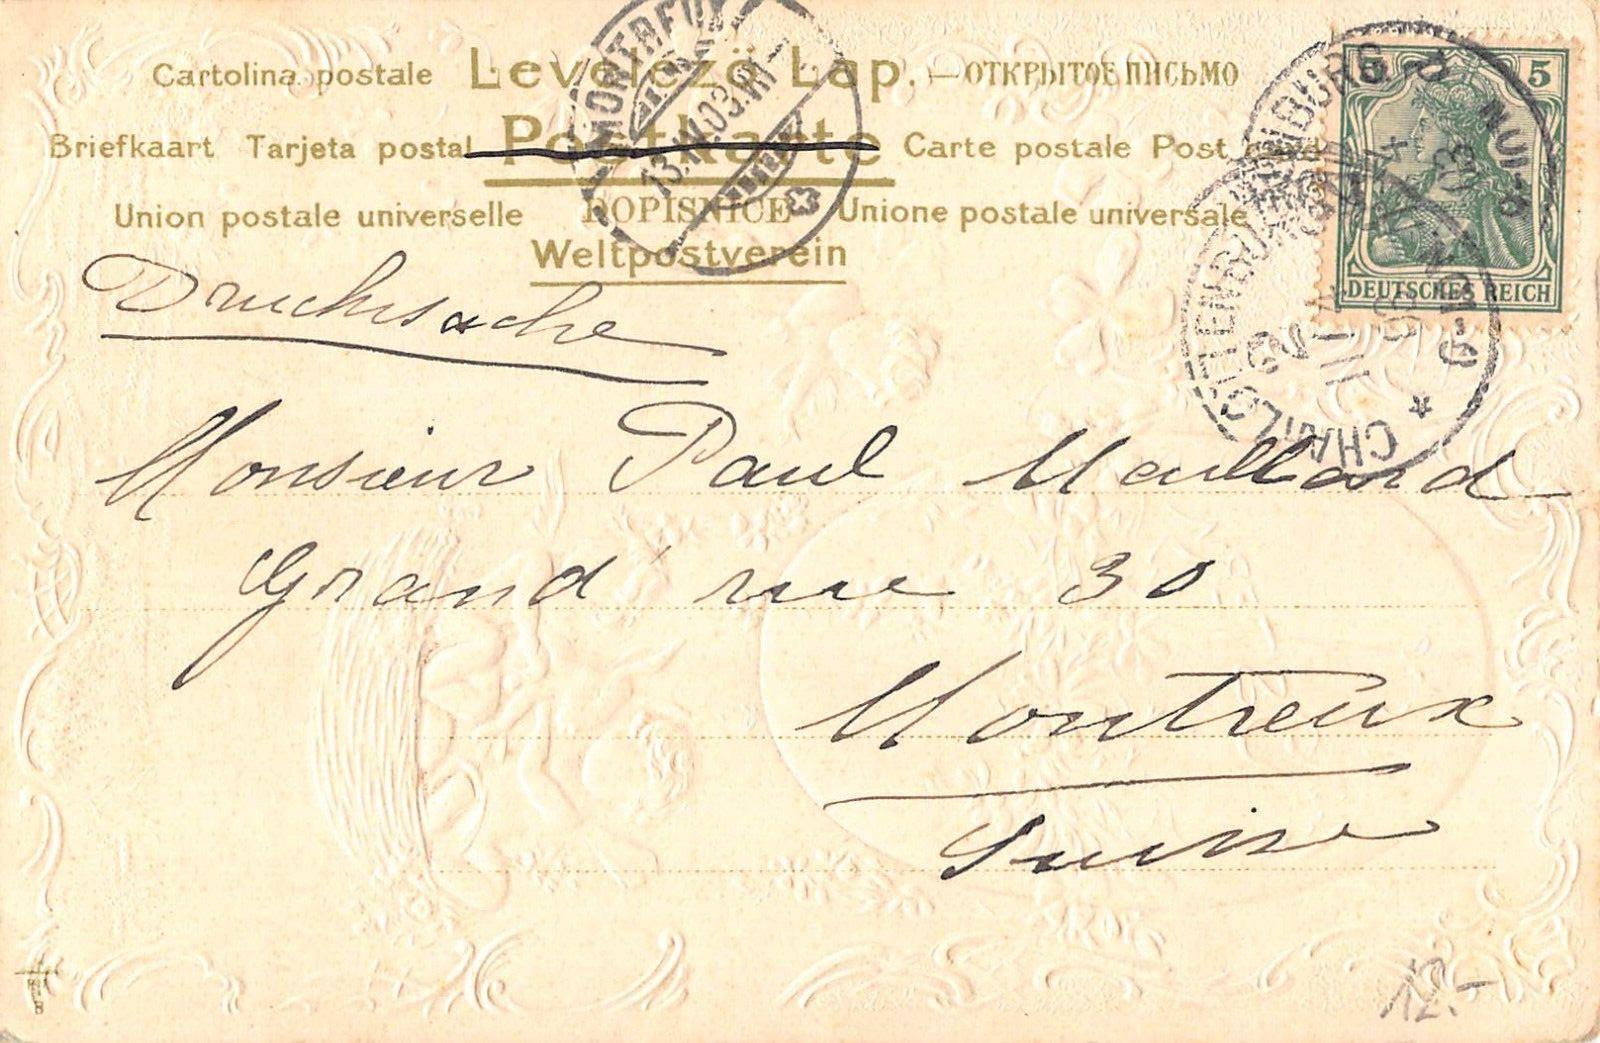 Cartolina postale Levelező Lap. — ОТКРЫТОЕ ПИСЬМО
Briefkaart Tarjeta postal Postkarte Carte postale Post card
Union postale universelle DOPISNICE Unione postale universale
Weltpostverein
MONTREUX
13.IV.03.VII-
5 5
DEUTSCHES REICH
CHARLOTTENBURG
Drucksache
Monsieur Paul Maillard
Grand' rue 30
Montreux
Suisse
12.-